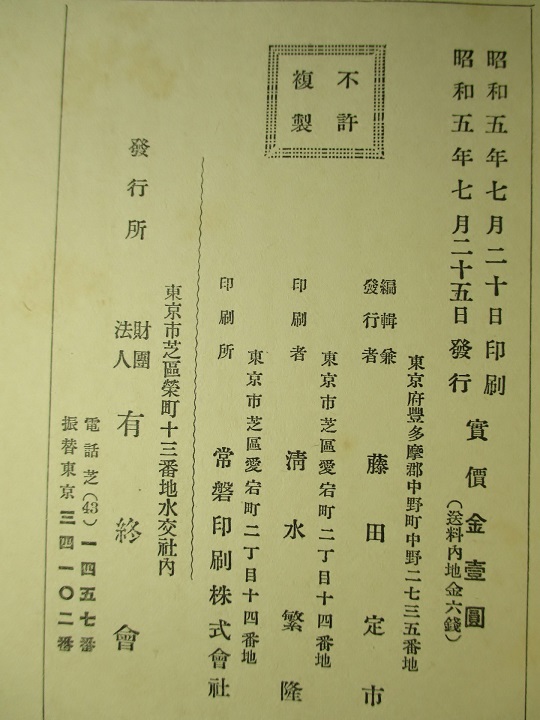 昭和五年七月二十日印刷
昭和五年七月二十五日發行
實價金壹圓
(送料內地金六錢)
不許
複製
東京府豐多摩郡中野町中野二七三五番地
編輯兼
發行者
藤田定市
東京市芝區愛宕町二丁目十四番地
印刷者
淸水繁隆
東京市芝區愛宕町二丁目十四番地
印刷所
常磐印刷株式會社
東京市芝區榮町十三番地水交社內
發行所
財團
法人
有終會
電話芝(43)一四五七番
振替東京三四一〇二番